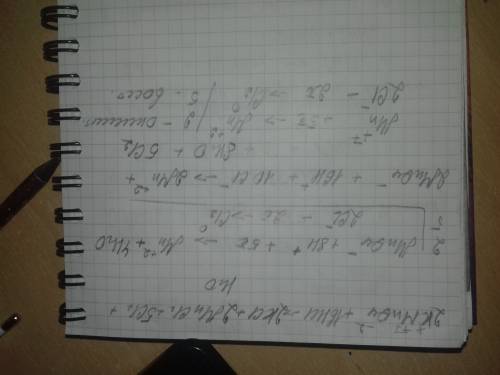 + +7 -2
2KMnO4 + 16HCl → 2KCl + 2MnCl2 + 5Cl2 +
H2O
2 | MnO4⁻ + 8H⁺ + 5ē → Mn⁺² + 4H2O
5 | 2Cl⁻ - 2ē → Cl2⁰
2MnO4⁻ + 16H⁺ + 10Cl⁻ → 2Mn⁺² +
+ 8H2O + 5Cl2
Mn⁺⁷ + 5ē → Mn⁺² | 2 -
2Cl⁻ - 2ē → Cl2⁰ | 5 - восст.